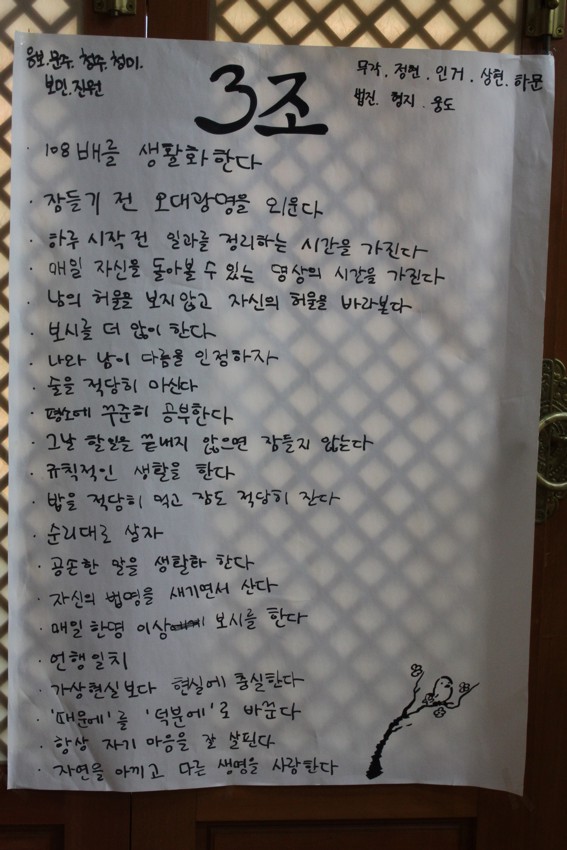 응보.문주.청주.청미.
보민.진원
3조
무각.정현.인거.상현.하문
법진.형지.웅도
· 108배를 생활화한다
· 잠들기 전 오대광명을 외운다
· 하루 시작 전 일과를 정리하는 시간을 가진다
· 매일 자신을 돌아볼 수 있는 명상의 시간을 가진다
· 남의 허물을 보지않고 자신의 허물을 바라본다
· 보시를 더 많이 한다
· 나와 남이 다름을 인정하자
· 술을 적당히 마신다
· 평소에 꾸준히 공부한다
· 그날 할일을 끝내지 않으면 잠들지 않는다
· 규칙적인 생활을 한다
· 밥을 적당히 먹고 잠도 적당히 잔다
· 순리대로 살자
· 공손한 말을 생활화 한다
· 자신의 법명을 새기면서 산다
· 매일 한명 이상 보시를 한다
· 언행일치
· 가상현실보다 현실에 충실한다
· '때문에'를 '덕분에'로 바꾼다
· 항상 자기 마음을 잘 살핀다
· 자연을 아끼고 다른 생명을 사랑한다